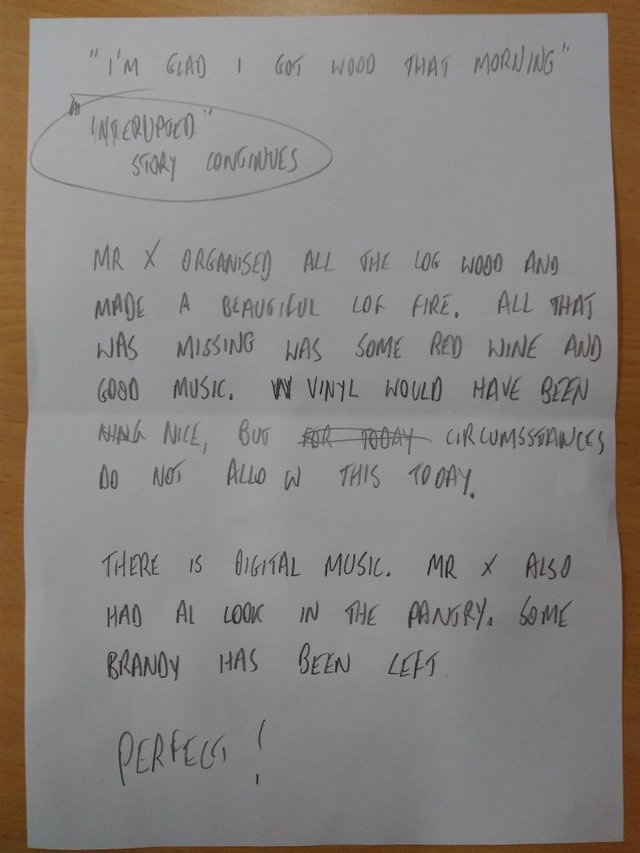 "I'M GLAD I GOT WOOD THAT MORNING"
"INTERUPTED"
STORY CONTINUES
MR X ORGANISED ALL THE LOG WOOD AND
MADE A BEAUTIFUL LOF FIRE. ALL THAT
WAS MISSING WAS SOME RED WINE AND
GOOD MUSIC. VINYL WOULD HAVE BEEN
NICE, BUT FOR TODAY CIRCUMSSTANCES
DO NOT ALLOW THIS TODAY.
THERE IS DIGITAL MUSIC. MR X ALSO
HAD AL LOOK IN THE PANTRY. SOME
BRANDY HAS BEEN LEFT.
PERFECT!